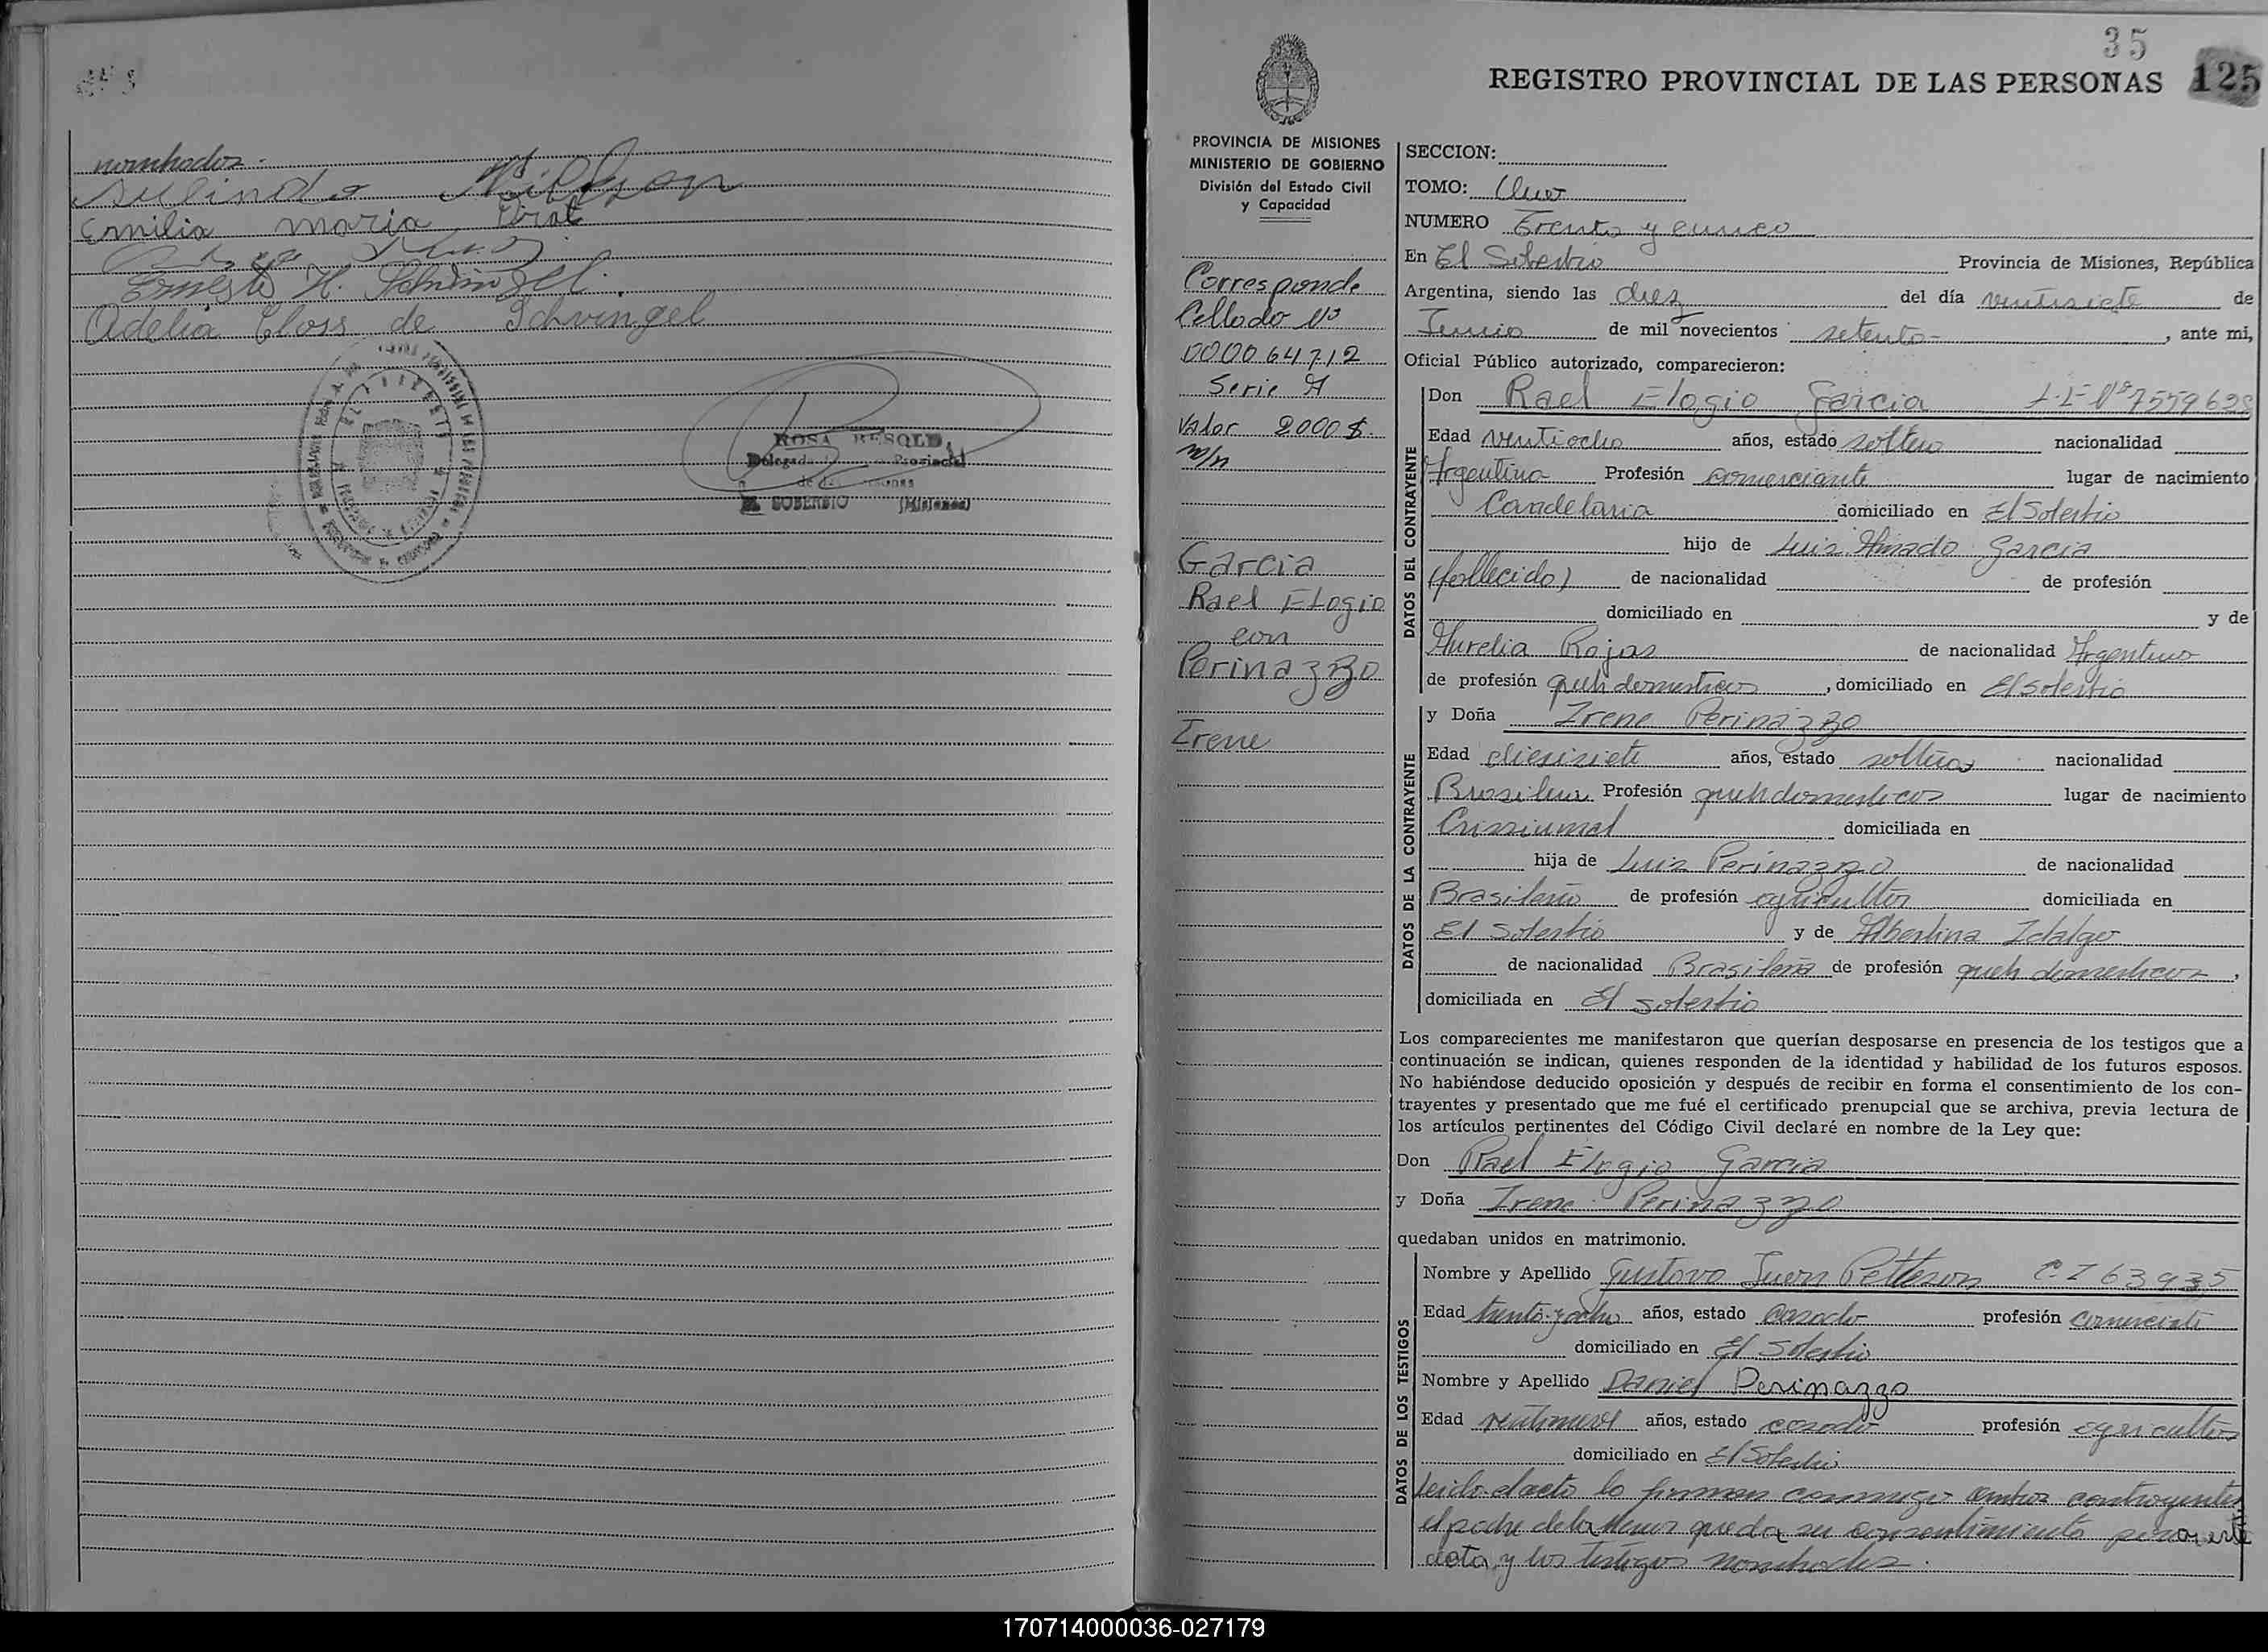 nombrados.
Emilia maria
Ernesto H. Schvingel.
Adelia Closs de Schvingel
ROSA
Delegada Provincial
EL SOBERBIO (Misiones)
35
REGISTRO PROVINCIAL DE LAS PERSONAS 125
PROVINCIA DE MISIONES
MINISTERIO DE GOBIERNO
División del Estado Civil
y Capacidad
Corresponde
Sellado Nº
000064712
Serie A
Valor 2000 $.
m/n
Garcia
Rael Elogio
con
Perinazzo
Irene
SECCION:
TOMO: Uno
NUMERO Treinta y cinco
En El Soberbio Provincia de Misiones, República
Argentina, siendo las diez del día veintisiete de
Junio de mil novecientos setenta , ante mi,
Oficial Público autorizado, comparecieron:
DATOS DEL CONTRAYENTE
Don Rael Elogio Garcia L.E Nº
Edad veintiocho años, estado soltero nacionalidad
Argentina Profesión comerciante lugar de nacimiento
Candelaria domiciliado en El Soberbio
hijo de Luis Amado Garcia
(fallecido) de nacionalidad de profesión
domiciliado en y de
Aurelia Rojas de nacionalidad Argentina
de profesión queh domesticos , domiciliado en El Soberbio
DATOS DE LA CONTRAYENTE
y Doña Irene Perinazzo
Edad diesisiete años, estado soltera nacionalidad
Brasilera Profesión queh domesticos lugar de nacimiento
Crissiumal domiciliada en
hija de Luiz Perinazzo de nacionalidad
Brasileño de profesión agricultor domiciliada en
El Soberbio y de Albertina Idalgo
de nacionalidad Brasileña de profesión queh domesticos ,
domiciliada en El Soberbio
Los comparecientes me manifestaron que querían desposarse en presencia de los testigos que a
continuación se indican, quienes responden de la identidad y habilidad de los futuros esposos.
No habiéndose deducido oposición y después de recibir en forma el consentimiento de los con-
trayentes y presentado que me fué el certificado prenupcial que se archiva, previa lectura de
los artículos pertinentes del Código Civil declaré en nombre de la Ley que:
Don Rael Elogio Garcia
y Doña Irene Perinazzo
quedaban unidos en matrimonio.
DATOS DE LOS TESTIGOS
Nombre y Apellido Gustavo Juan Petterson C.I 63935
Edad treinta y ocho años, estado casado profesión comerciante
domiciliado en El Soberbio
Nombre y Apellido Daniel Perinazzo
Edad veintinueve años, estado casado profesión agricultor
domiciliado en El Soberbio
Leido el acta lo firman conmigo ambos contrayentes
el padre de la menor queda su consentimiento para este
acta y los testigos nombrados.
170714000036-027179